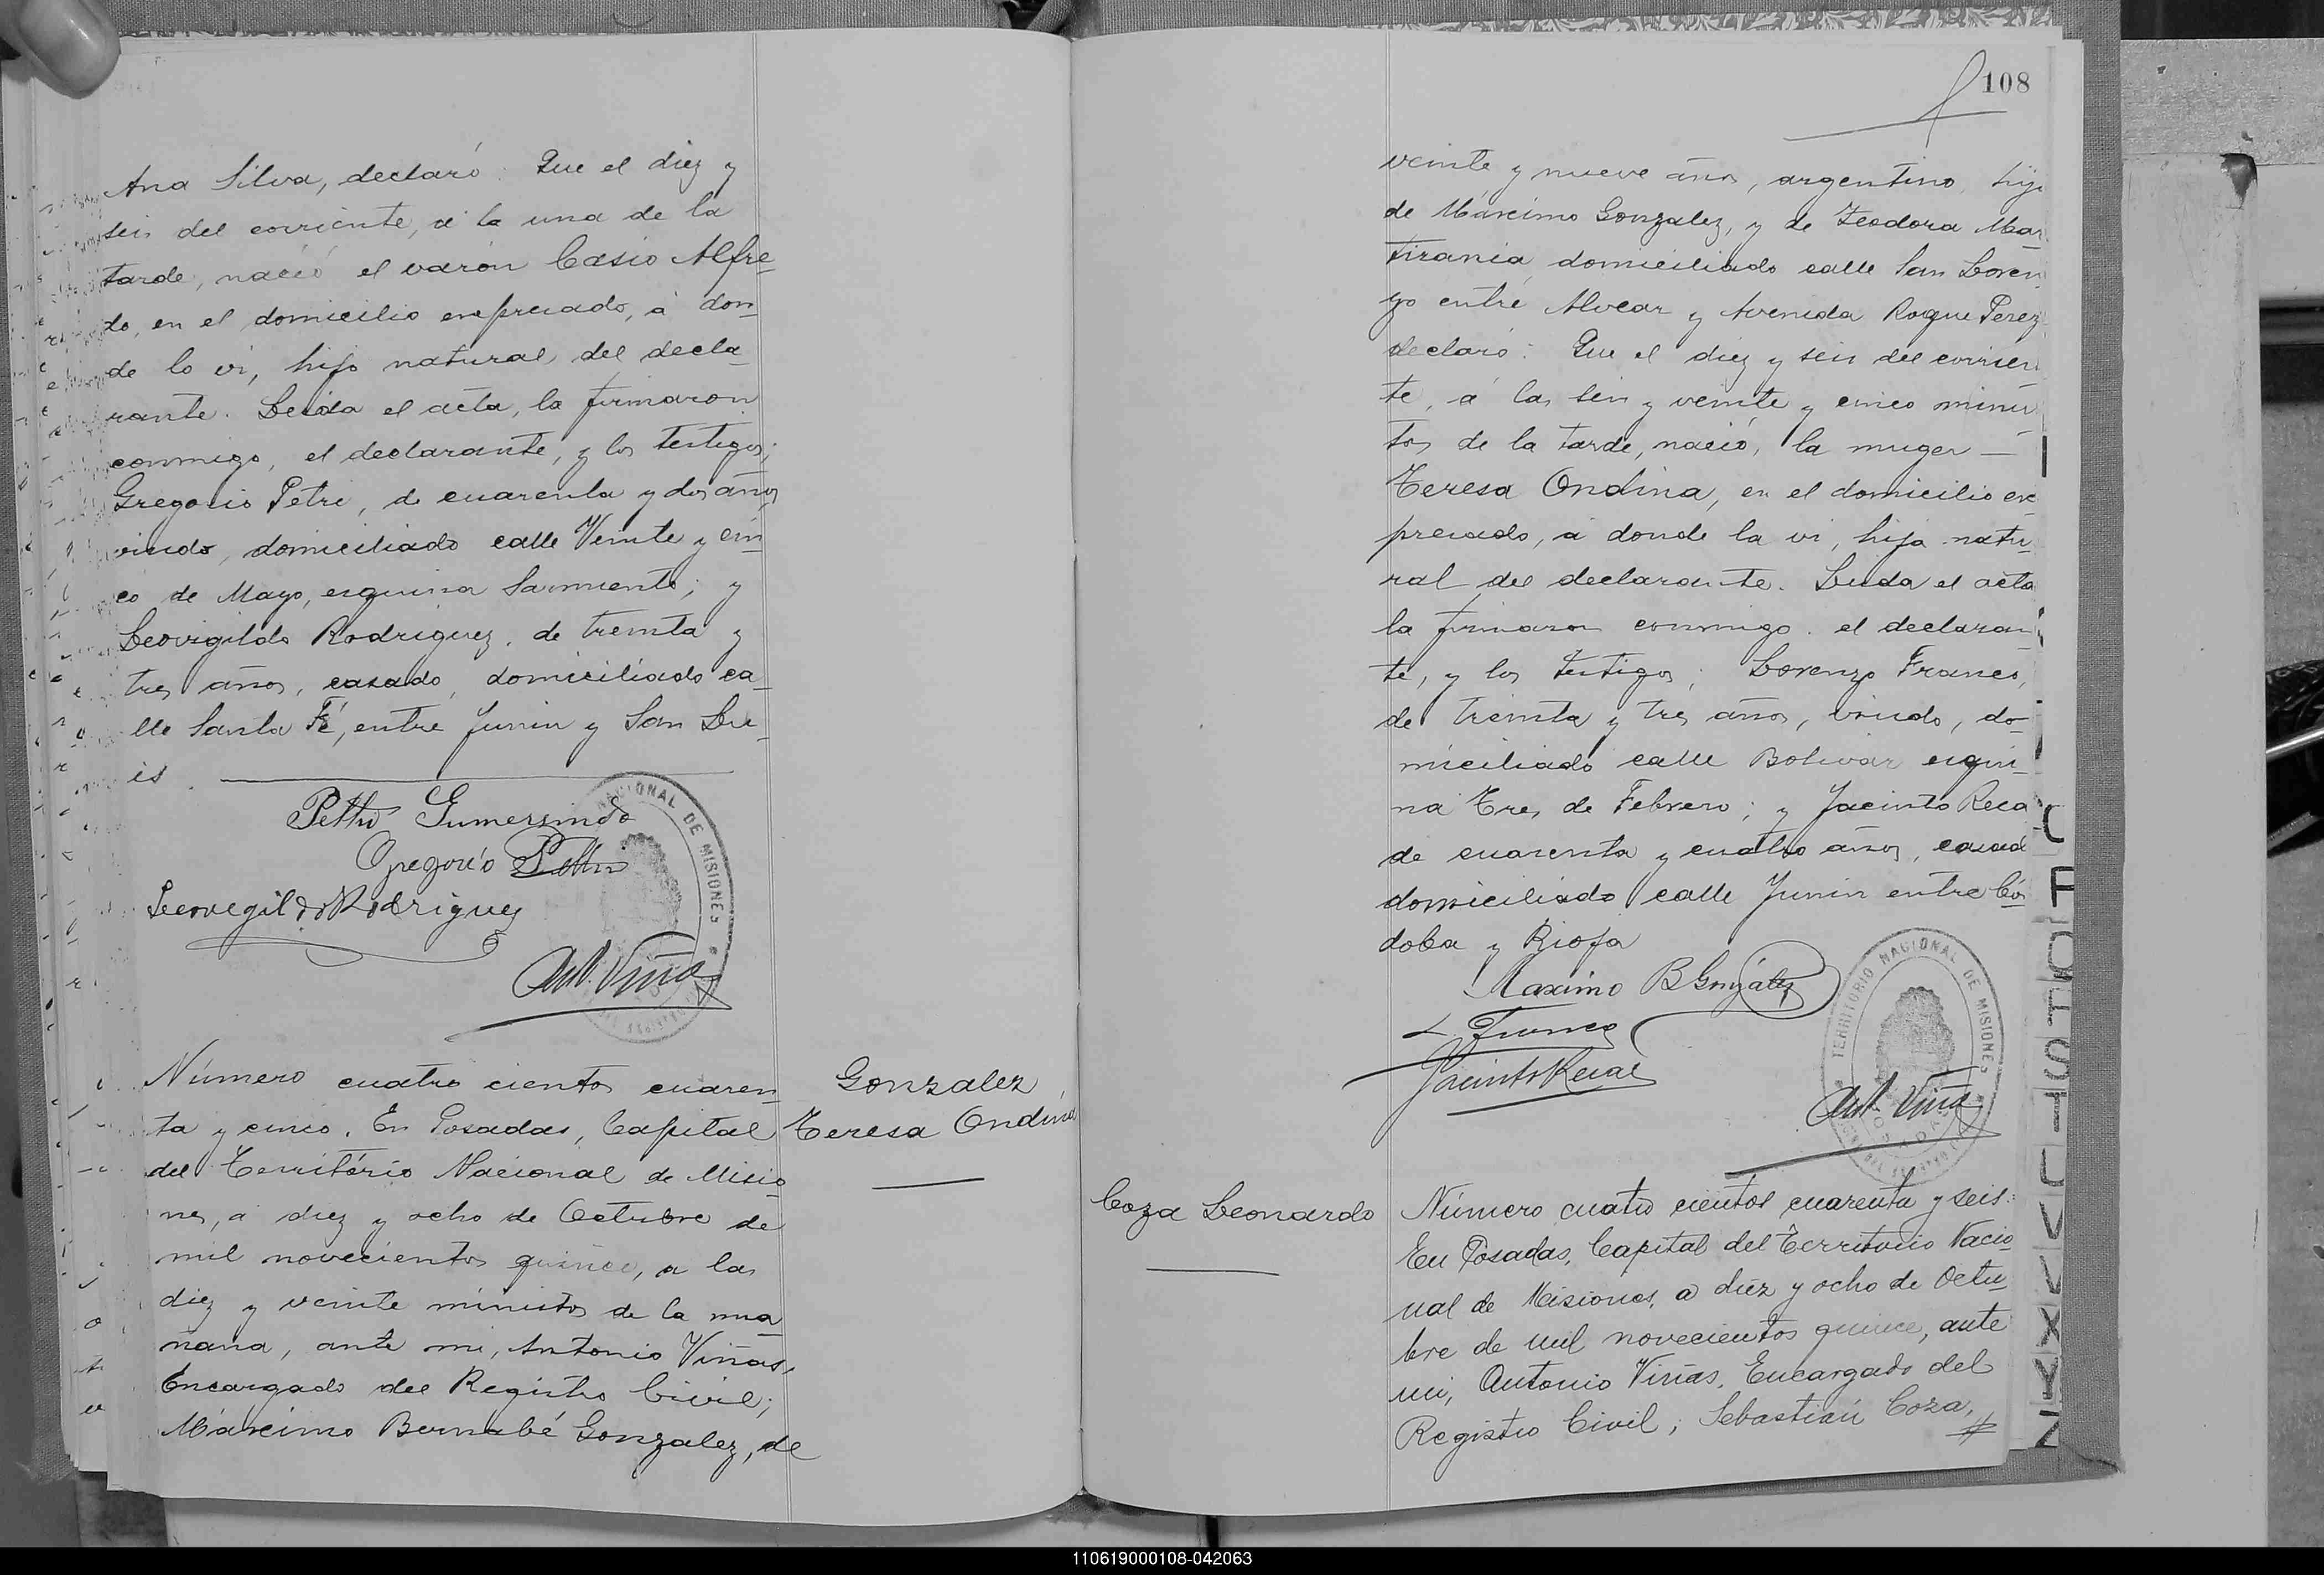 Ana Silva, declaró: Que el diez y
seis del corriente, á la una de la
tarde, nació el varón Casio Alfre-
do, en el domicilio expresado, á don-
de lo vi, hijo natural, del decla-
rante. Leida el acta, la firmaron
conmigo, el declarante, y los testigos;
Gregorio Petri, de cuarenta y dos años,
viudo, domiciliado calle Veinte y cin-
co de Mayo, esquina Sarmiento; y
Leovigildo Rodriguez, de treinta y
tres años, casado, domiciliado ca-
lle Santa Fé, entre Junin y San Lu-
is
Gumersindo
Gregorio
Leovegildo Rodriguez
Ant. Viña
NACIONAL DE MISIONES
Número cuatro cientos cuaren-
ta y cinco. En Posadas, Capital
del Território Nacional de Misio-
nes, á diez y ocho de Octubre de
mil novecientos quince, a las
diez y veinte minutos de la ma-
ñana, ante mi, Antonio Viñas,
Encargado del Registro Civil;
Máximo Bernabé Gonzalez, de
Gonzalez
Teresa Ondina
108
veinte y nueve años, argentino, hijo
de Máximo Gonzalez, y de Teodora Mar-
tirania, domiciliado calle San Loren-
zo entre Alvear y Avenida Roque Perez
declaró: Que el diez y seis del corrien-
te, á las seis y veinte y cinco minu-
tos de la tarde, nació, la muger
Teresa Ondina, en el domicilio ex-
presado, á donde la vi, hija natu-
ral del declarante. Leida el acta
la firmaron conmigo. el declaran-
te, y los testigos; Lorenzo Franco,
de treinta y tres años, viudo, do-
miciliado calle Bolivar esqui-
na Tres de Febrero; y Jacinto Reca
de cuarenta y cuatro años, casado
domiciliado calle Junin entre Cór-
doba y Rioja
Maximo B Gonzalez
L Franco
Jacinto
TERRITORIO NACIONAL DE MISIONES
Ant. Viña
Coza Leonardo
Número cuatro cientos cuarenta y seis.
En Posadas, Capital del Territorio Nacio-
nal de Misiones, a diez y ocho de Octu-
bre de mil novecientos quince, ante
mi, Antonio Viñas, Encargado del
Registro Civil; Sebastian Coza,
S
T
U
V
V
X
Y
Z
110619000108-042063